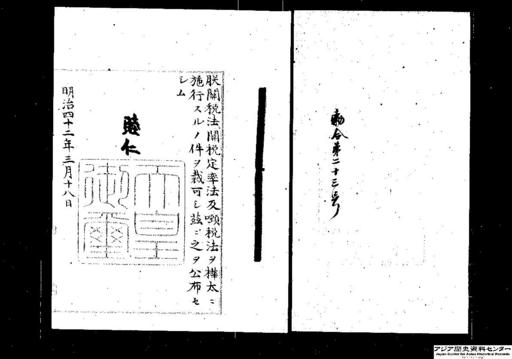 勅令第二十三号
朕関税法関税定率法及噸税法ヲ樺太ニ
施行スルノ件ヲ裁可シ茲ニ之ヲ公布セ
シム
睦仁
天皇
御璽
明治四十二年三月十八日
アジア歴史資料センター
Japan Center for Asian Historical Records